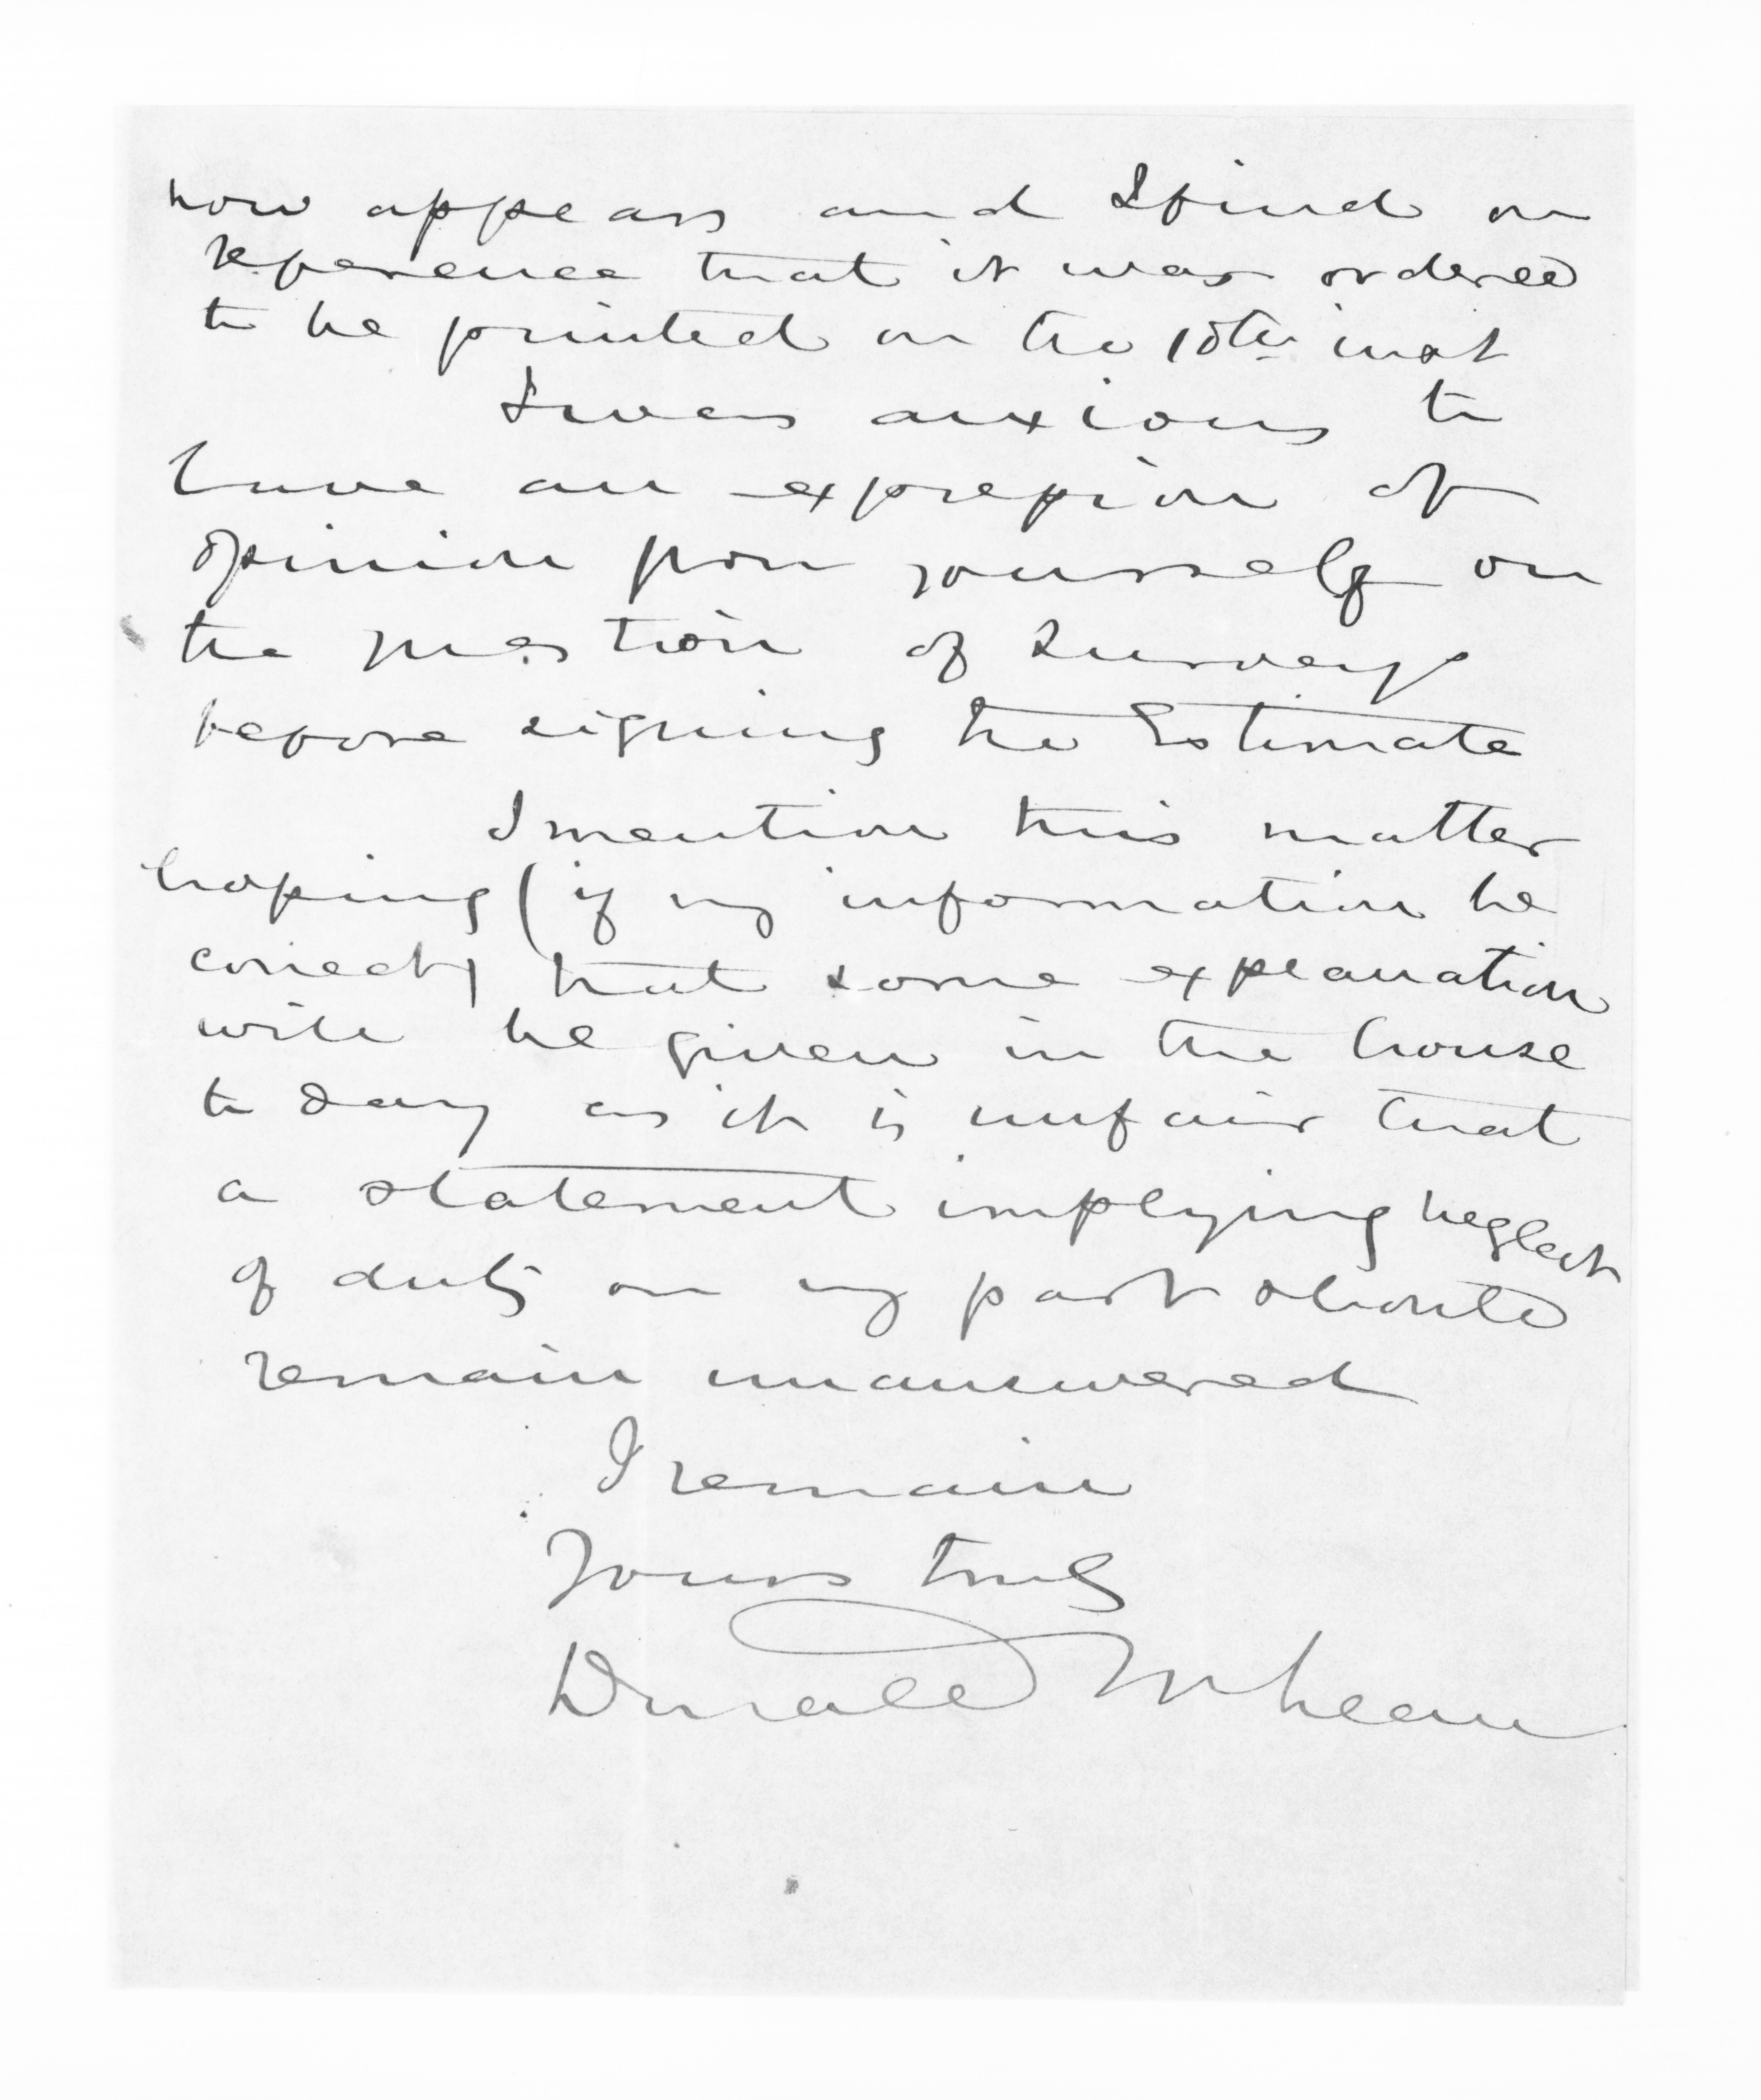 now appears and I find on
reference that it was ordered
to be printed on the 18th inst
I was anxious to
have an expression of
opinion from yourself on
the question of Surveys
before signing the Estimate
I mention this matter
hoping (if my information be
correct) that some explanation
will be given in the house
to day as it is unfair that
a statement implying neglect
of duty on my part should
remain unanswered
I remain
Yours truly
Donald McLean